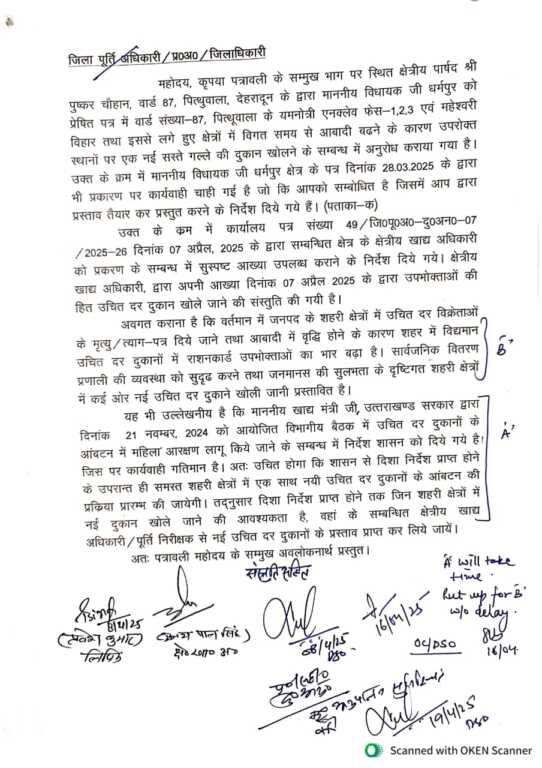 जिला पूर्ति अधिकारी/प्र०अ०/जिलाधिकारी
महोदय, कृपया पत्रावली के सम्मुख भाग पर स्थित क्षेत्रीय पार्षद श्री
पुष्कर चौहान, वार्ड 87, पित्थुवाला, देहरादून के द्वारा माननीय विधायक जी धर्मपुर को
प्रेषित पत्र में वार्ड संख्या–87, पित्थूवाला के यमनोत्री एनक्लेव फेस–1,2,3 एवं महेश्वरी
विहार तथा इससे लगे हुए क्षेत्रों में विगत समय से आबादी बढने के कारण उपरोक्त
स्थानों पर एक नई सस्ते गल्ले की दुकान खोलने के सम्बन्ध में अनुरोध कराया गया है।
उक्त के क्रम में माननीय विधायक जी धर्मपुर क्षेत्र के पत्र दिनांक 28.03.2025 के द्वारा
भी प्रकारण पर कार्यवाही चाही गई है जो कि आपको सम्बोधित है जिसमें आप द्वारा
प्रस्ताव तैयार कर प्रस्तुत करने के निर्देश दिये गये हैं। (पताका–क)
उक्त के क्रम में कार्यालय पत्र संख्या 49/जि०पू०अ०–दु०अन०–07
/2025–26 दिनांक 07 अप्रैल, 2025 के द्वारा सम्बन्धित क्षेत्र के क्षेत्रीय खाद्य अधिकारी
को प्रकरण के सम्बन्ध में सुस्पष्ट आख्या उपलब्ध कराने के निर्देश दिये गये। क्षेत्रीय
खाद्य अधिकारी, द्वारा अपनी आख्या दिनांक 07 अप्रैल 2025 के द्वारा उपभोक्ताओं की
हित उचित दर दुकान खोले जाने की संस्तुति की गयी है।
अवगत कराना है कि वर्तमान में जनपद के शहरी क्षेत्रों में उचित दर विक्रेताओं
के मृत्यु/त्याग–पत्र दिये जाने तथा आबादी में वृद्धि होने के कारण शहर में विद्यमान
उचित दर दुकानों में राशनकार्ड उपभोक्ताओं का भार बढा है। सार्वजनिक वितरण
'B'
प्रणाली की व्यवस्था को सुदृढ करने तथा जनमानस की सुलभता के दृष्टिगत शहरी क्षेत्रों
में कई ओर नई उचित दर दुकाने खोली जानी प्रस्तावित है।
यह भी उल्लेखनीय है कि माननीय खाद्य मंत्री जी, उत्तराखण्ड सरकार द्वारा
दिनांक 21 नवम्बर, 2024 को आयोजित विभागीय बैठक में उचित दर दुकानों के
'A'
आंबटन में महिला आरक्षण लागू किये जाने के सम्बन्ध में निर्देश शासन को दिये गये है।
जिस पर कार्यवाही गतिमान है। अतः उचित होगा कि शासन से दिशा निर्देश प्राप्त होने
के उपरान्त ही समस्त शहरी क्षेत्रों में एक साथ नयी उचित दर दुकानों के आंबटन की
प्रक्रिया प्रारम्भ की जायेगी। तद्नुसार दिशा निर्देश प्राप्त होने तक जिन शहरी क्षेत्रों में
नई दुकान खोले जाने की आवश्यकता है, वहां के सम्बन्धित क्षेत्रीय खाद्य
अधिकारी/पूर्ति निरीक्षक से नई उचित दर दुकानों के प्रस्ताव प्राप्त कर लिये जायें।
अतः पत्रावली महोदय के सम्मुख अवलोकनार्थ प्रस्तुत।
संस्तुति सहित
'A' will take
time.
Put up for 'B'
w/o delay.
16/04
16/04/25
OC/DSO
8/4/25
लिपिक
क्षे० खा० अ०
08/4/25
DSO
19/4/25
DSO
Scanned with OKEN Scanner